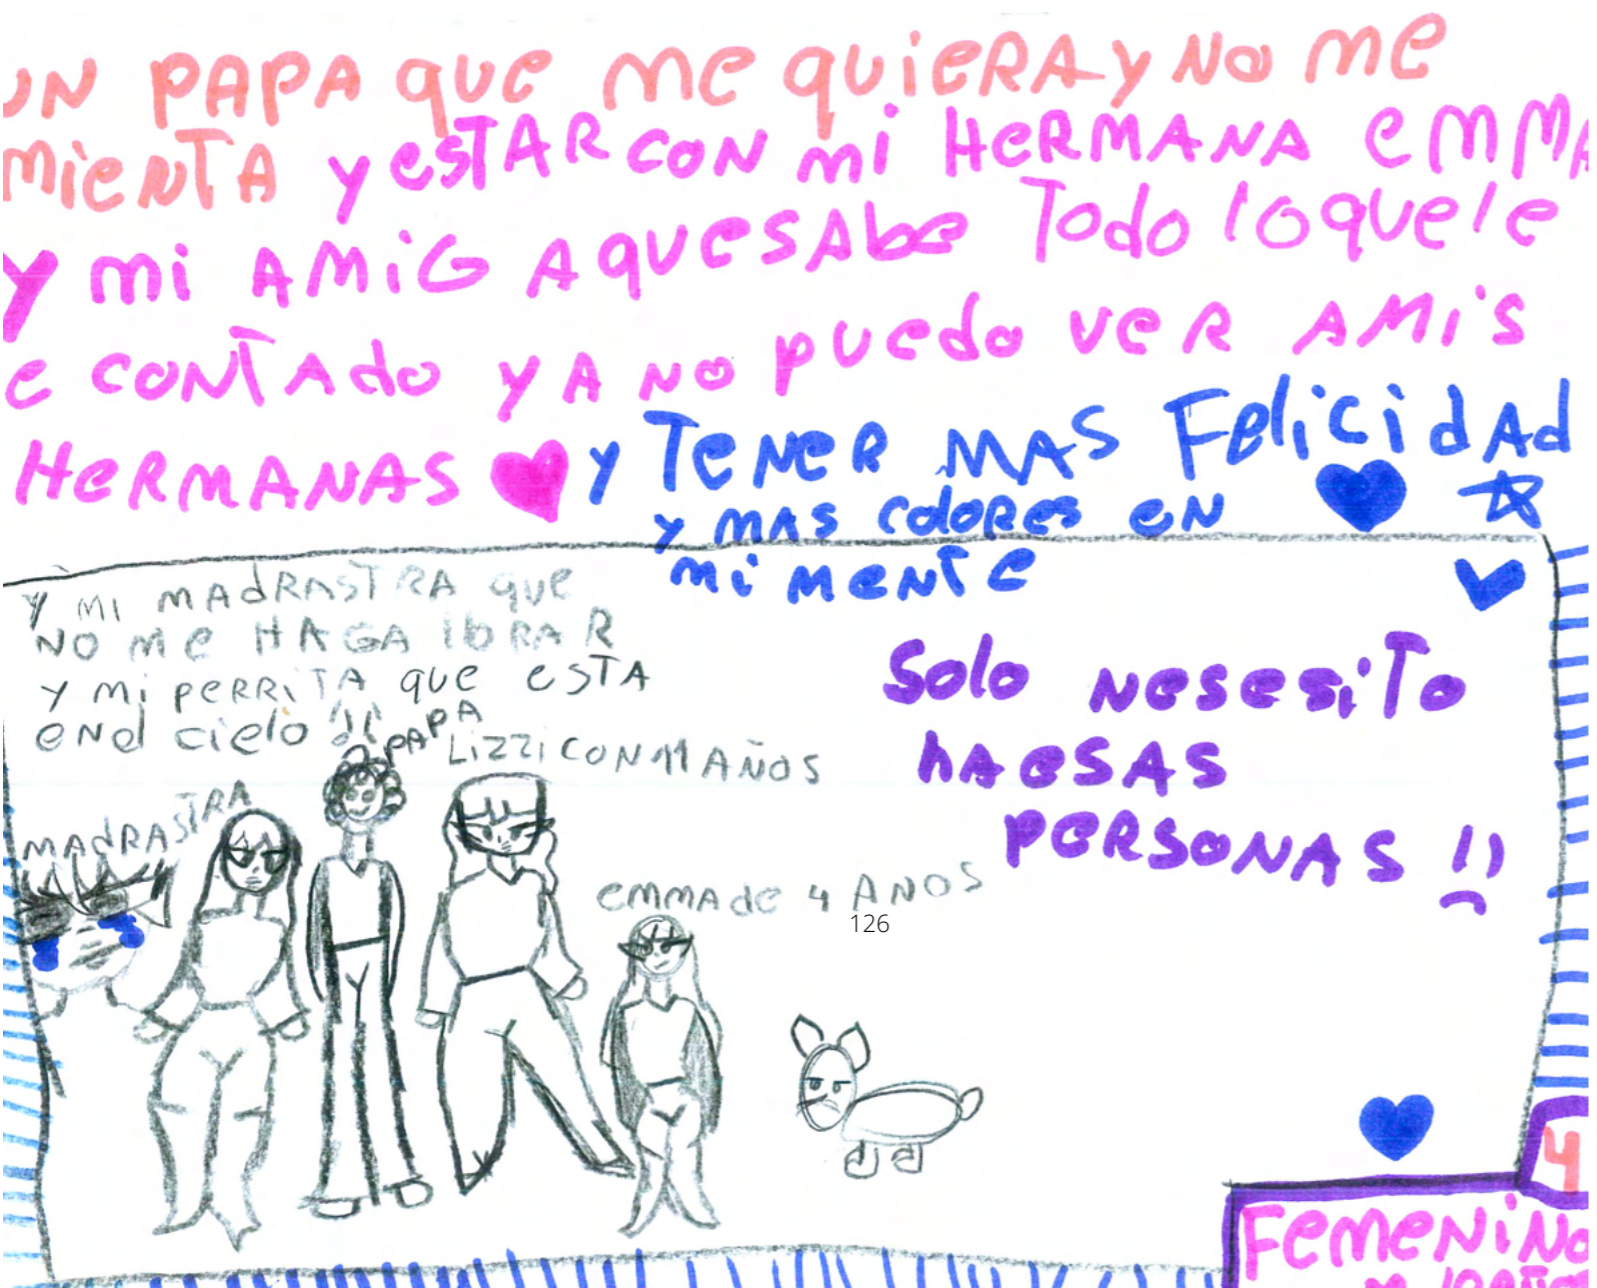 UN PAPA que me quieRA y No me
mieNTA y esTAR CON mi HeRMANA emmA
y mi AMiG A que sAbe Todo lo que le
e CONTAdo y A NO puedo veR A Mis
HeRMANAS y TeNeR MAS FeliCidAd
y mAs coloRes eN
mi meNTe
y mi mAdRASTRA que
NO me HAGA lbRAR
y mi peRRiTA que esTA
eNel cielo !!
PAPA
Lizzi CON 11 AÑOS
MAdRASTRA
Solo Nesesito
hAesAs
peRSONAS !!
emmA de 4 ANOS
126
4
FemeNiNo